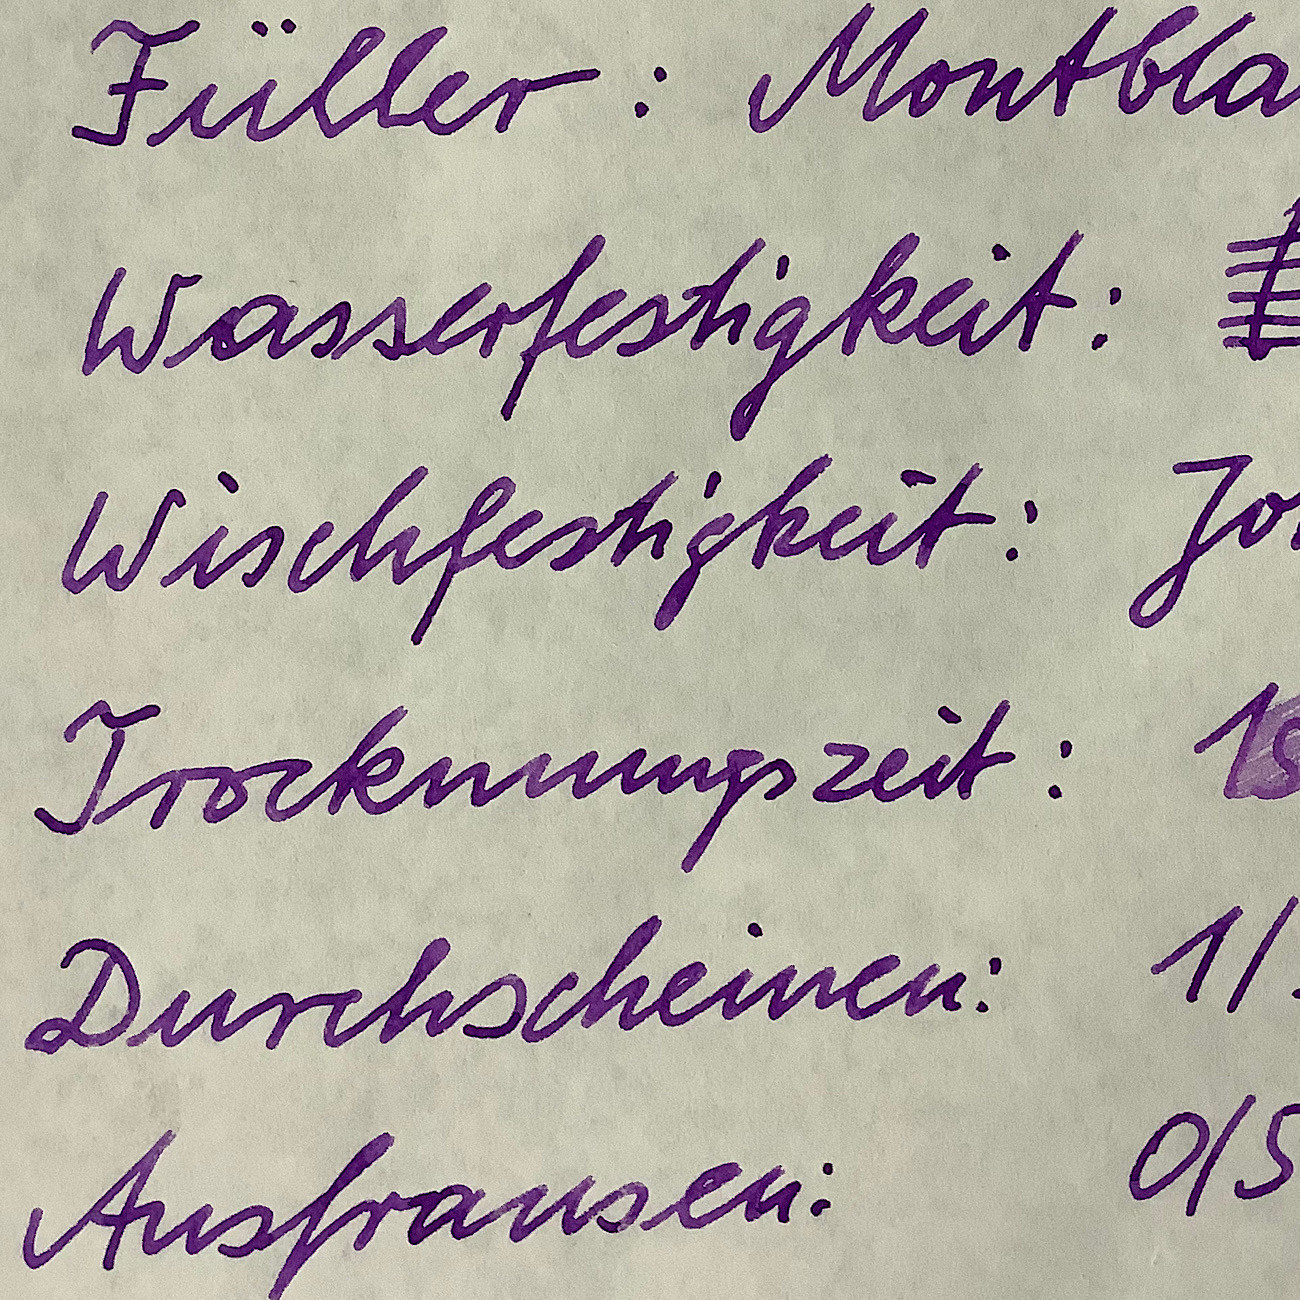 Füller: Montbla
Wasserfestigkeit:
Wischfestigkeit:
Trocknungszeit:
Durchscheinen: 1/
Ausfransen: 0/5